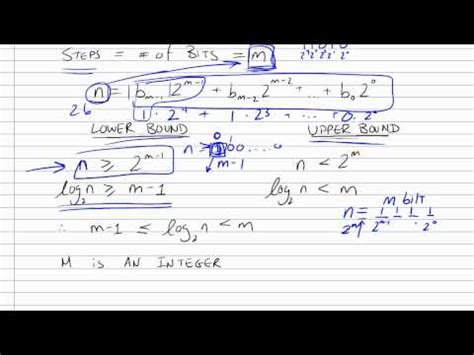 STEPS = # of BITS = m
n = 1 b_{m-1} 2^{m-1} + b_{m-2} 2^{m-2} + ... + b_0 2^0
26 1 · 2^4 + 1 · 2^3 ... + 0 · 2^0
LOWER BOUND UPPER BOUND
n ≥ 100....0
m-1
n ≥ 2^{m-1} n < 2^m
log_2 n ≥ m-1 log_2 n < m
m bit
n = 1 1 1 1
2^m 2^{m-1} 2^0
∴ m-1 ≤ log_2 n < m
M IS AN INTEGER